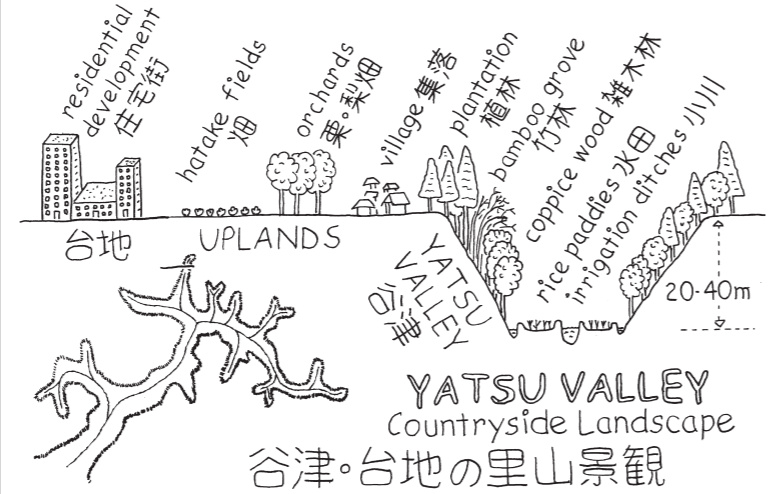 residential
development
住宅街
hatake fields
畑
orchards
栗・梨畑
village 集落
plantation
植林
bamboo grove
竹林
coppice wood 雑木林
rice paddies 水田
irrigation ditches 小川
台地 UPLANDS
YATSU
VALLEY
谷津
20-40m
YATSU VALLEY
Countryside Landscape
谷津・台地の里山景観